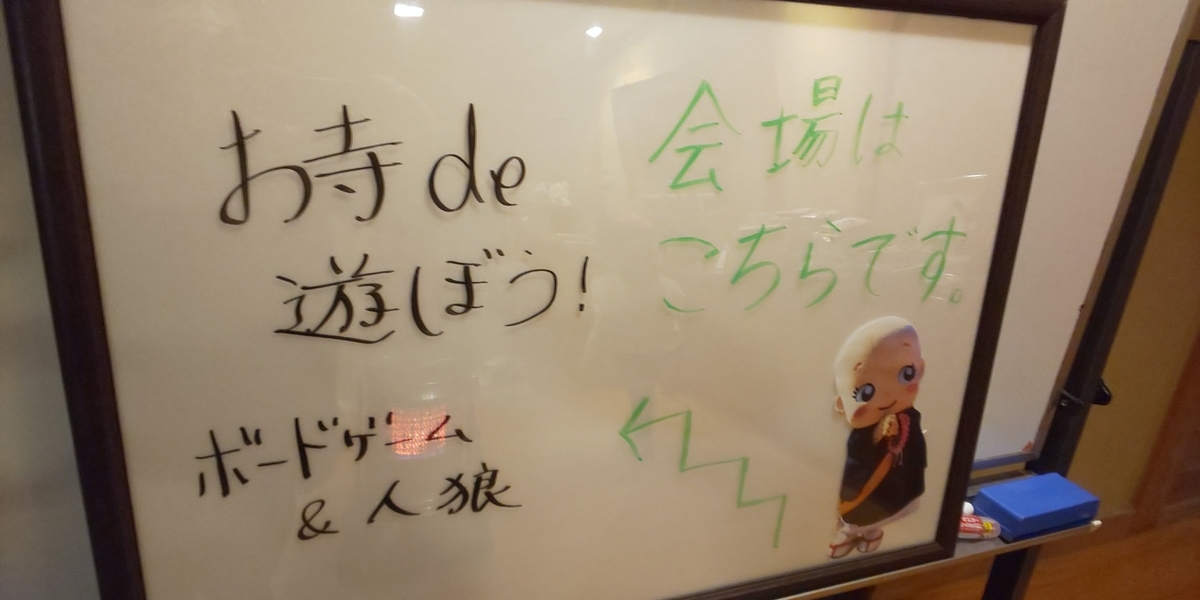 お寺de
遊ぼう!
ボードゲーム
&人狼
会場は
こちらです。